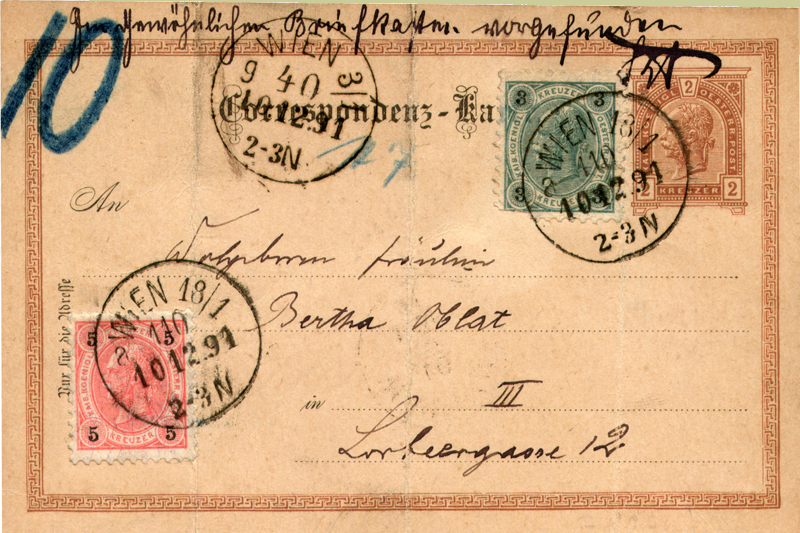 Im gewöhnlichen Briefkasten vorgefunden
10
WIEN 3/1
9 40
10 12.91
2-3N
Correspondenz-Ka
3 3
KREUZER
3 3
2
KREUZER
2 2
WIEN 18/1
110
10 12.91
2-3N
17
An
Wolgeboren Fräulein
Bertha Oblat
in III
Lorbeergasse 12
Nur für die Adresse
WIEN 18/1
110
10 12.91
2-3N
5 5
5 KREUZER 5